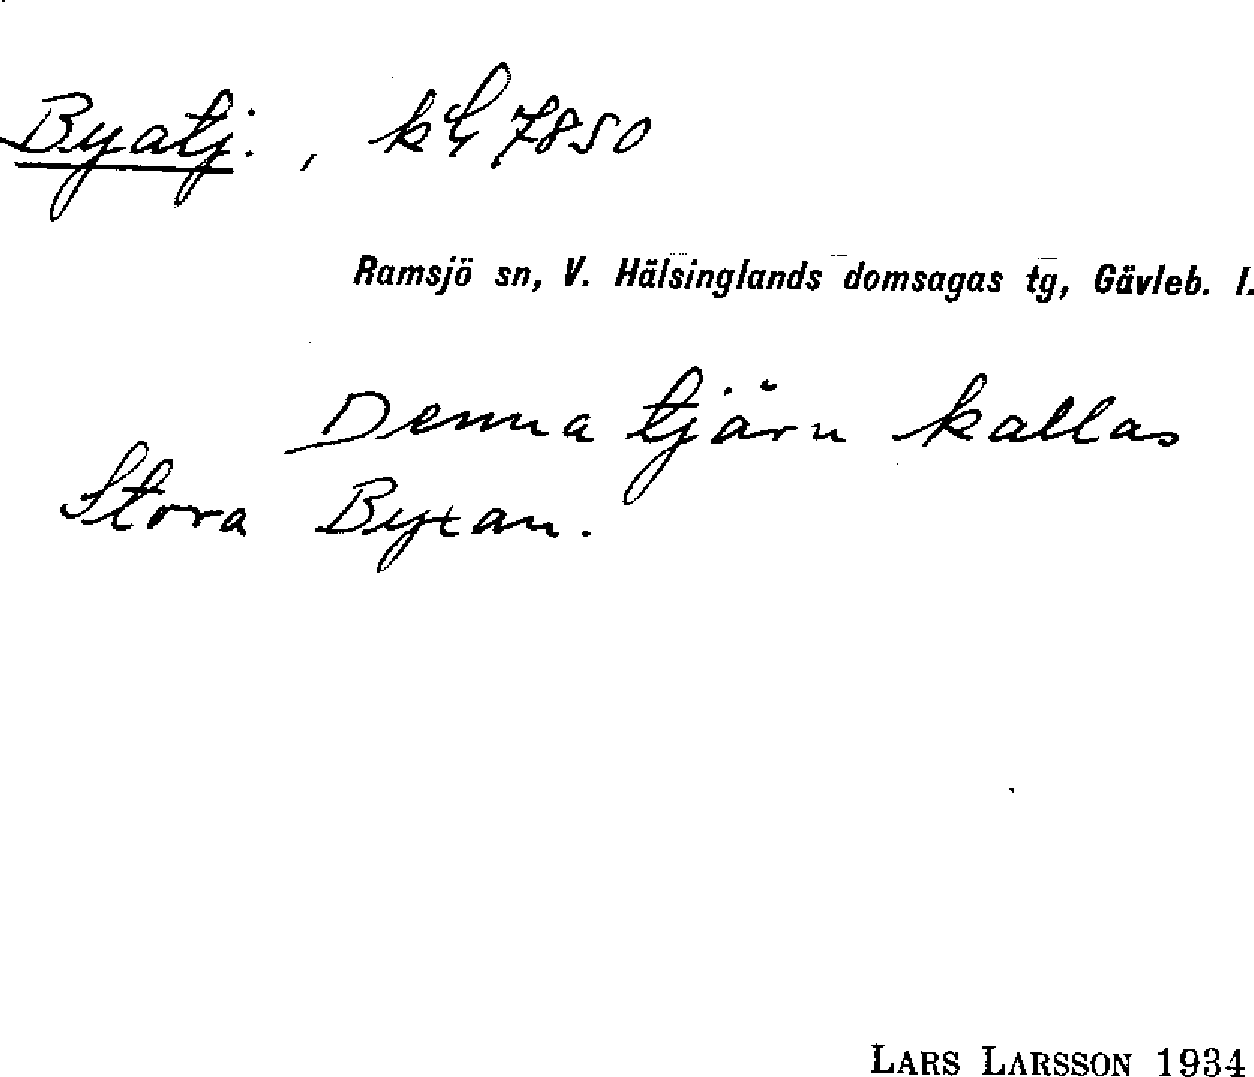 Byatj:, kbl 7850
Ramsjö sn, V. Hälsinglands domsagas tg, Gävleb. l.
Denna tjärn kallas
Stora Byxan.
LARS LARSSON 1934